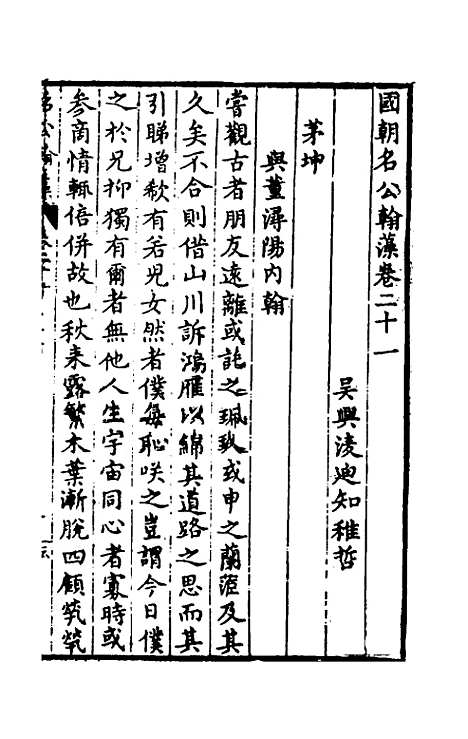 國朝名公翰藻卷二十一
吴興淩迪知稚哲
茅坤
與董潯陽内翰
嘗觀古者朋友遠離或託之珮玖或申之蘭茝及其
久矣不合則借山川訴鴻雁以綿其道路之思而其
引睇增欷有若兒女然者僕每恥咲之豈謂今日僕
之於兄抑獨有爾者無他人生宇宙同心者寡時或
参商情輒倍併故也秋来露繁木葉漸脫四顧煢煢